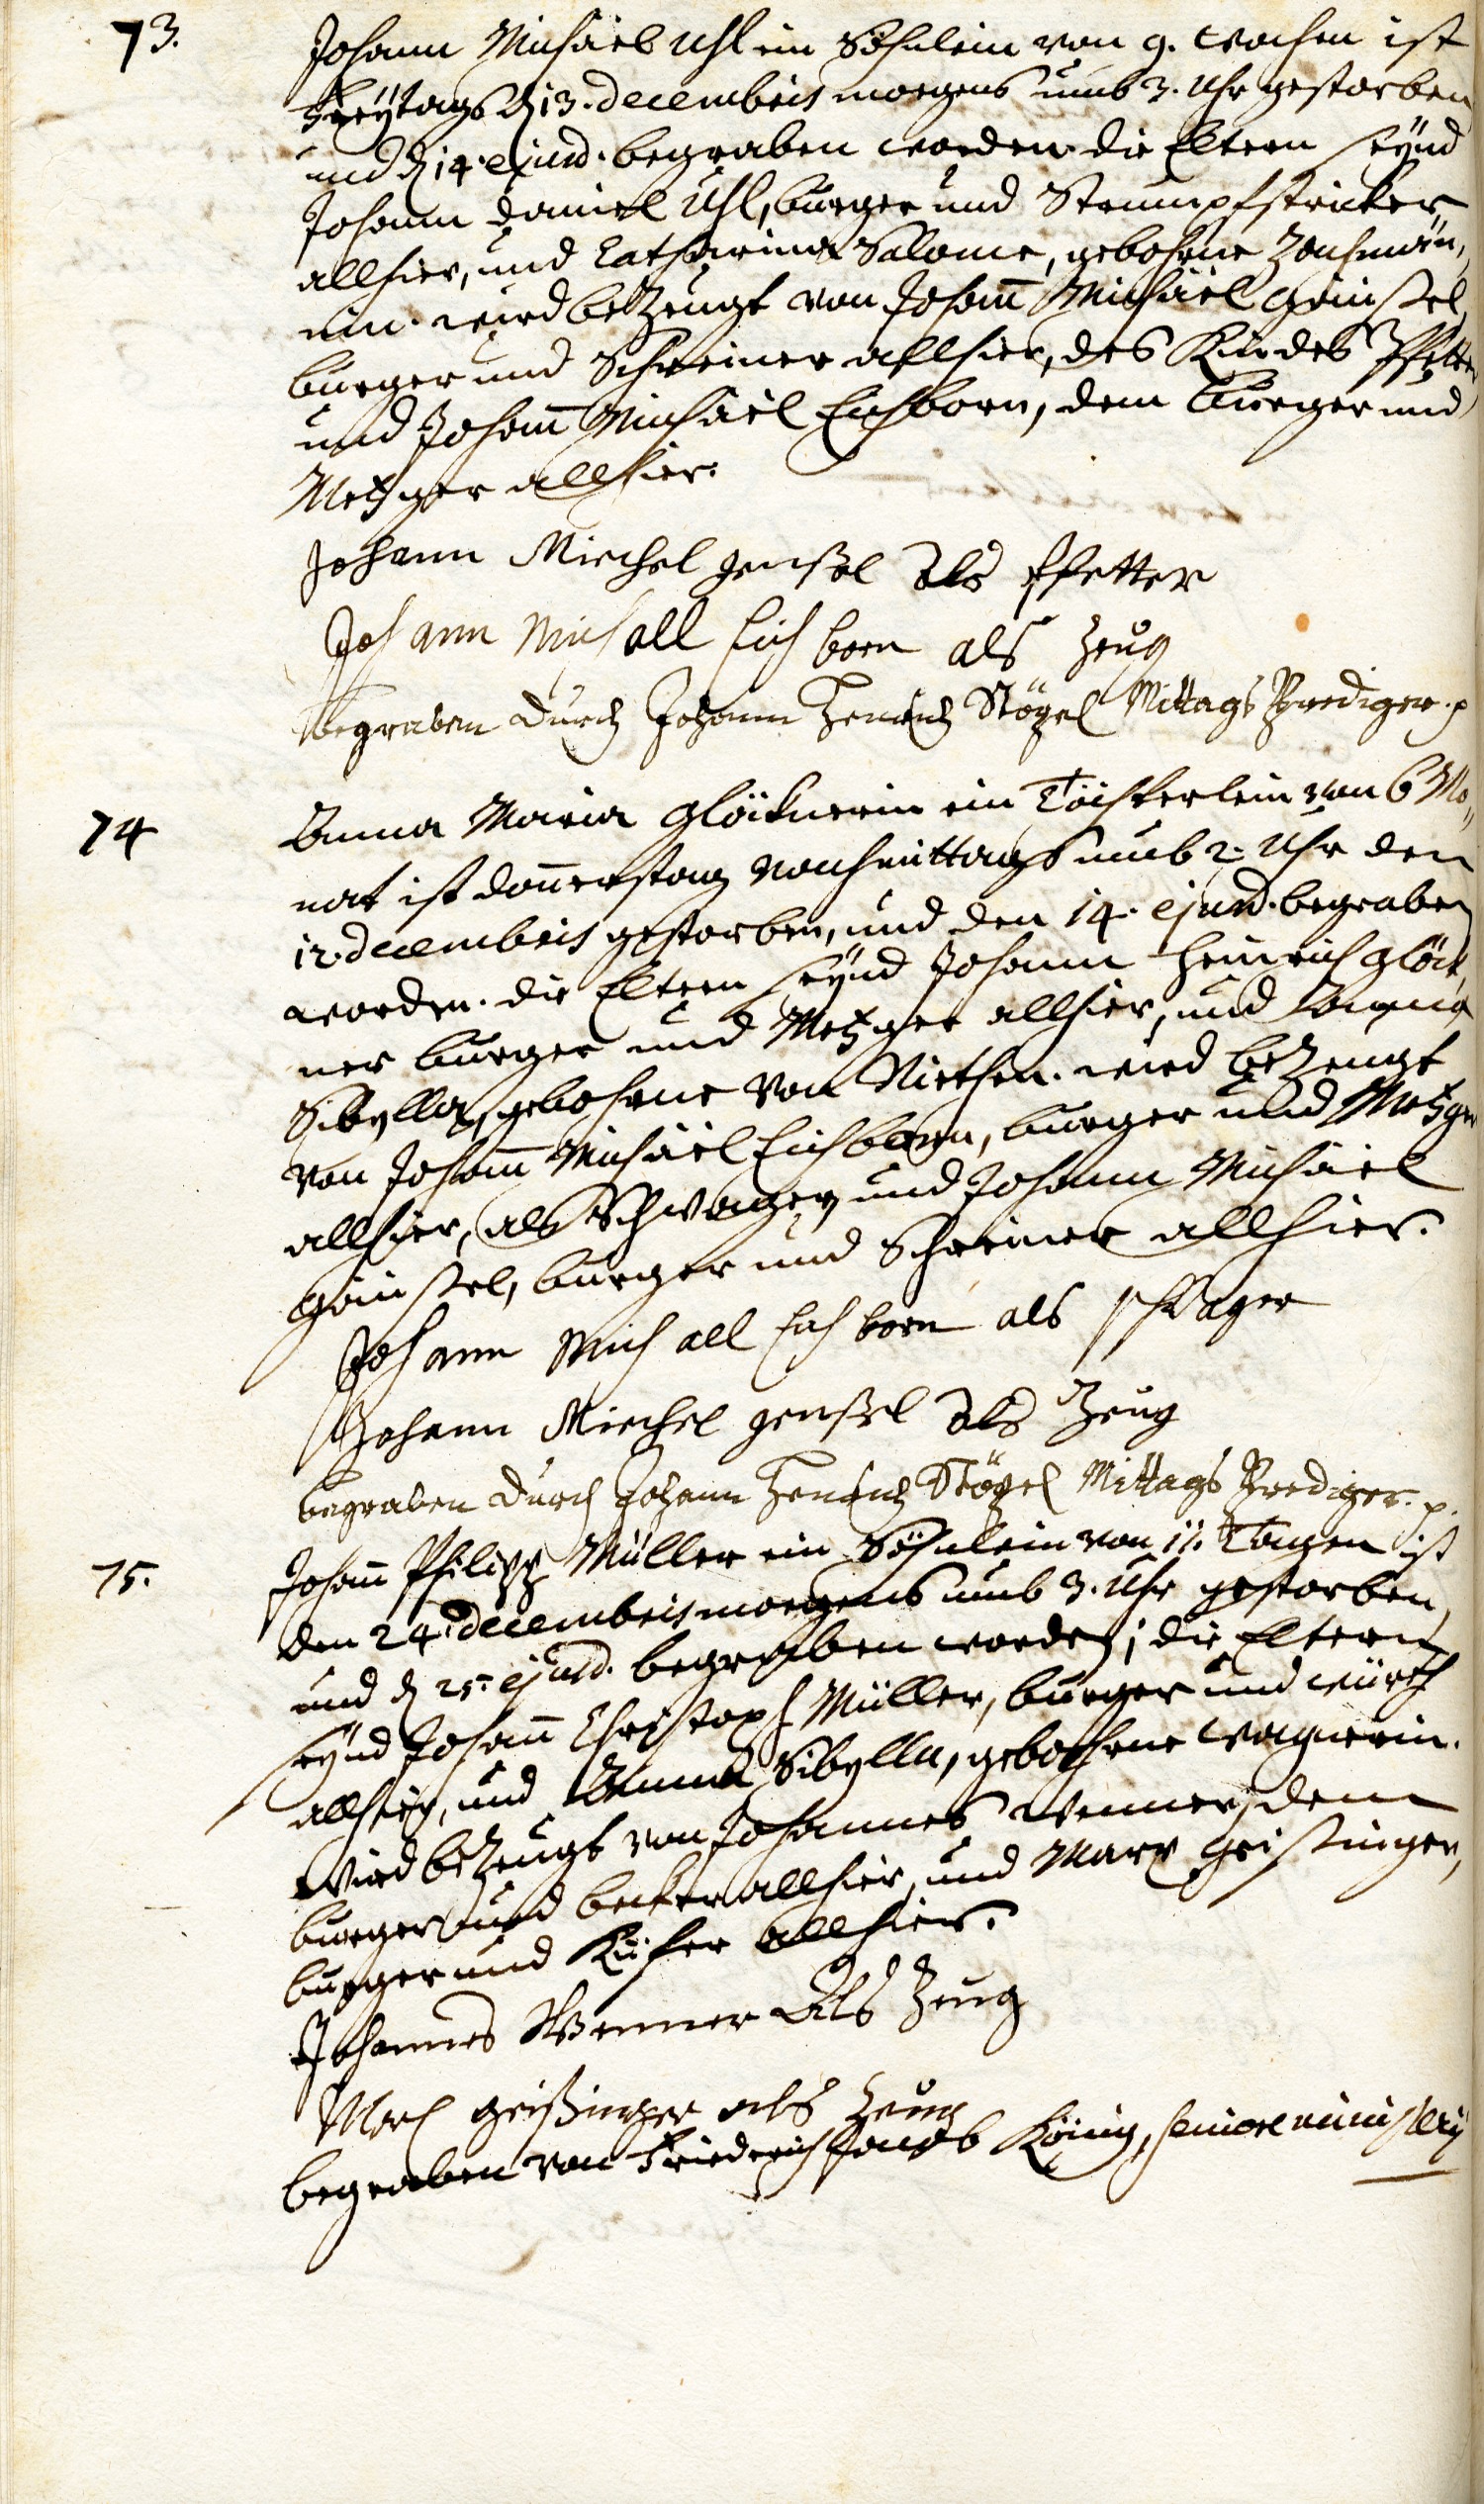 73.
Johann Michäel Uhl ein Söhnlein von 9. wochen ist
Freÿtags d 13. decembris morgens umb 3. Uhr gestorben
und d 14. ejusd. begraben worden. die Eltern seÿnd
Johann Daniel Uhl, burger und Strumpfstricker
allhier, und Catharina Salome, gebohrne Zachmän„
nin. wird bezeugt von Joham̄ Michäel Gäinssel,
burger und Schreiner allhier, des Kindes Pfetter
und Joham̄ Michäel Eichborn, dem burger und
Metzger allhier.
Johann Miechel genssel als Pfetter
Johann Michall Eichborn als Zeug
begraben durch Johann Henrich Stögel Mittags Prediger. p
74
Anna Maria Glöcknerin ein Töchterlein von 6 Mo„
nat ist don̄erstag nachmittags umb 2. Uhr den
12. decembris gestorben, und den 14. ejusd. begraben
worden. die Eltern seÿnd Johann Heinrich Glöck„
ner burger und Metzger allhier, und Anna
Sibylla, gebohrne von Niethen. wird bezeugt
von Joham̄ Michäel Eichborn, burger und Metzger
allhier, als Schwager, und Johann Michäel
Gäinssel, burger und Schreiner allhier.
Johann Michall Eichborn als schwager
Johann Miechel genssel als Zeug
begraben durch Johann Henrich Stögel Mittags Prediger. p.
75.
Joham̄ Philipp Müller ein Söhnlein von 11. Tagen ist
den 24. decembris morgens umb 3. Uhr gestorben,
und d 25. ejusd. begraben worden; die Eltern
seÿnd Joham̄ Christoph Müller, burger und würth
allhier, und Anna Sibylla, gebohrne Wagnerin.
wird bezeugt von Johannes Wenner, dem
burger und becker allhier, und Marx Geissinger,
burger und Küfer allhier.
Johannes Wenner als Zeug
Marx geissinger als Zeug
begraben von Friederich Jacob König, seniore ministerÿ